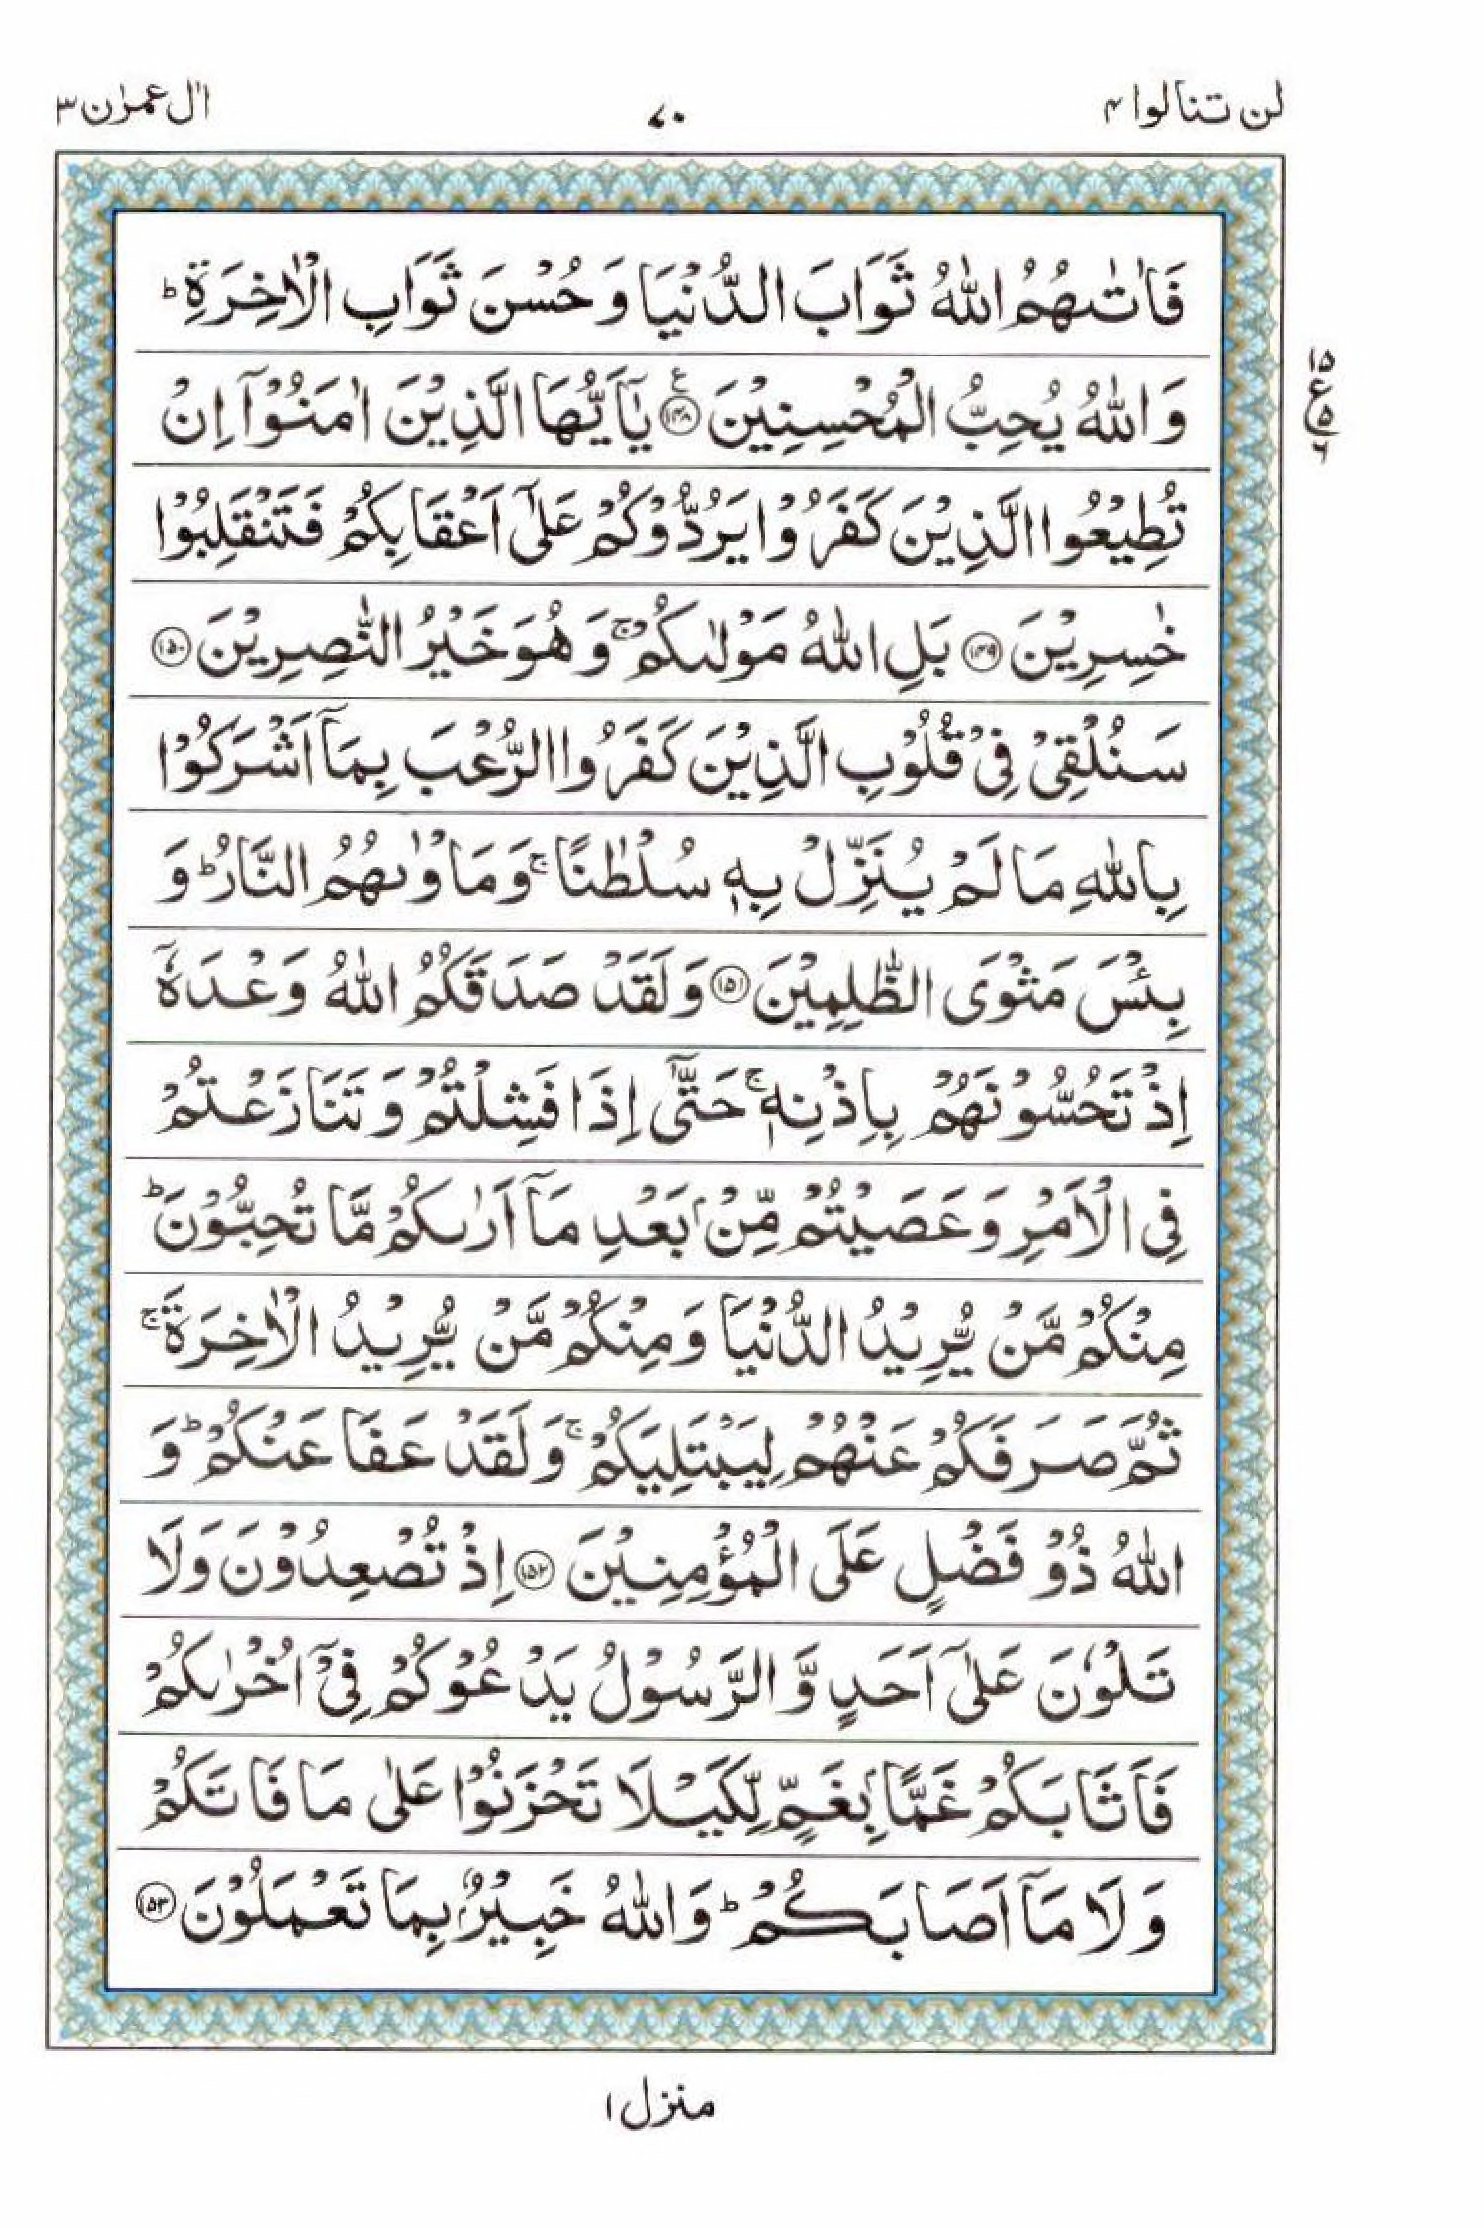 لن تنالوا ۴
۷۰
اٰل عمرٰن ۳
فَاٰتٰىهُمُ اللّٰهُ ثَوَابَ الدُّنْيَا وَحُسْنَ ثَوَابِ الْاٰخِرَةِ ؕ
وَاللّٰهُ يُحِبُّ الْمُحْسِنِيْنَ ۝۱۴۸ ع يٰۤاَيُّهَا الَّذِيْنَ اٰمَنُوْۤا اِنْ
تُطِيْعُوا الَّذِيْنَ كَفَرُوْا يَرُدُّوْكُمْ عَلٰۤى اَعْقَابِكُمْ فَتَنْقَلِبُوْا
خٰسِرِيْنَ ۝۱۴۹ بَلِ اللّٰهُ مَوْلٰىكُمْ ۚ وَهُوَ خَيْرُ النّٰصِرِيْنَ ۝۱۵۰
سَنُلْقِيْ فِيْ قُلُوْبِ الَّذِيْنَ كَفَرُوا الرُّعْبَ بِمَاۤ اَشْرَكُوْا
بِاللّٰهِ مَا لَمْ يُنَزِّلْ بِهٖ سُلْطٰنًا ۚ وَمَاْوٰىهُمُ النَّارُ ؕ وَ
بِئْسَ مَثْوَى الظّٰلِمِيْنَ ۝۱۵۱ وَلَقَدْ صَدَقَكُمُ اللّٰهُ وَعْدَهٗۤ
اِذْ تَحُسُّوْنَهُمْ بِاِذْنِهٖ ۚ حَتّٰۤى اِذَا فَشِلْتُمْ وَتَنَازَعْتُمْ
فِي الْاَمْرِ وَعَصَيْتُمْ مِّنْۢ بَعْدِ مَاۤ اَرٰىكُمْ مَّا تُحِبُّوْنَ ؕ
مِنْكُمْ مَّنْ يُّرِيْدُ الدُّنْيَا وَمِنْكُمْ مَّنْ يُّرِيْدُ الْاٰخِرَةَ ۚ
ثُمَّ صَرَفَكُمْ عَنْهُمْ لِيَبْتَلِيَكُمْ ۚ وَلَقَدْ عَفَا عَنْكُمْ ؕ وَ
اللّٰهُ ذُوْ فَضْلٍ عَلَى الْمُؤْمِنِيْنَ ۝۱۵۲ اِذْ تُصْعِدُوْنَ وَلَا
تَلْوٗنَ عَلٰۤى اَحَدٍ وَّالرَّسُوْلُ يَدْعُوْكُمْ فِيْۤ اُخْرٰىكُمْ
فَاَثَابَكُمْ غَمًّۢا بِغَمٍّ لِّكَيْلَا تَحْزَنُوْا عَلٰى مَا فَاتَكُمْ
وَلَا مَاۤ اَصَابَكُمْ ؕ وَاللّٰهُ خَبِيْرٌۢ بِمَا تَعْمَلُوْنَ ۝۱۵۳
۱۵
ع
۵
۶
منزل ۱